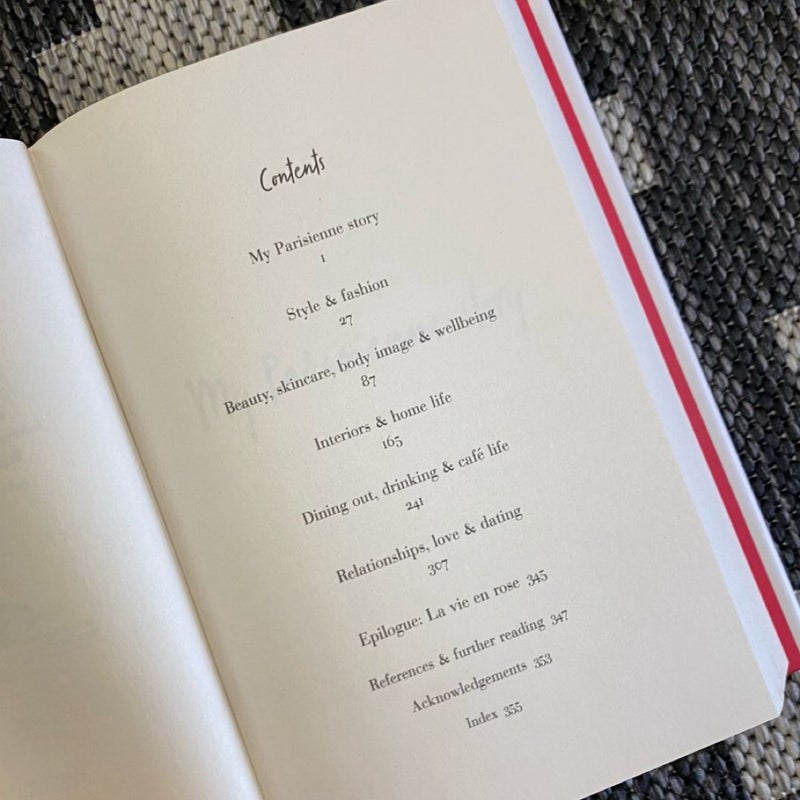 Contents
My Parisienne story
1
Style & fashion
27
Beauty, skincare, body image & wellbeing
87
Interiors & home life
165
Dining out, drinking & café life
241
Relationships, love & dating
307
Epilogue: La vie en rose 345
References & further reading 347
Acknowledgements 353
Index 355